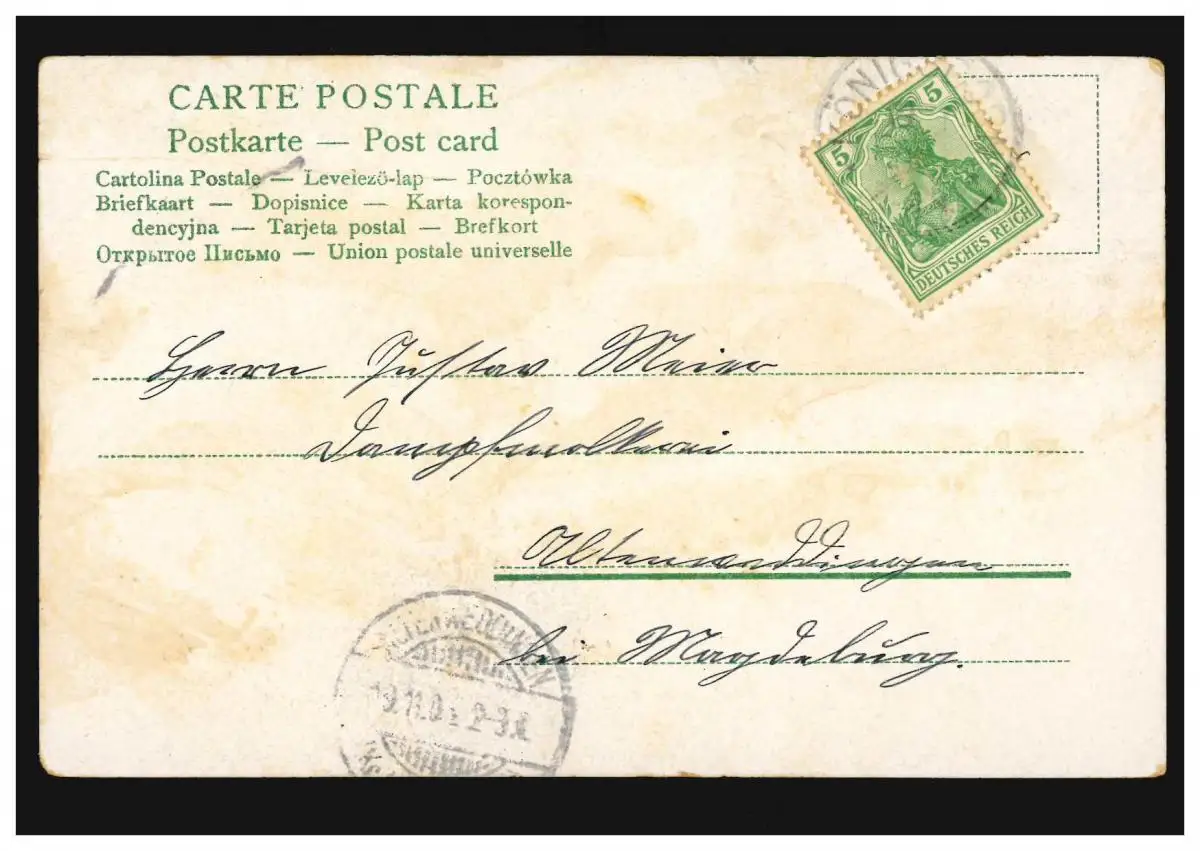 CARTE POSTALE
Postkarte — Post card
Cartolina Postale — Levelező-lap — Pocztówka
Briefkaart — Dopisnice — Karta korespon-
dencyjna — Tarjeta postal — Brefkort
Открытое Письмо — Union postale universelle
5
5
DEUTSCHES REICH
Herrn Gustav Meier
Dampfmolkerei
Altenweddingen
bei Magdeburg.
ALTENWEDDINGEN